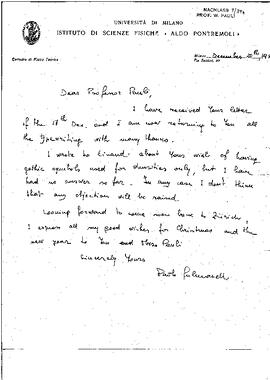 NACHLASS
PROF. W. PAULI
UNIVERSITÀ DI MILANO
ISTITUTO DI SCIENZE FISICHE "ALDO PONTREMOLI"
Milano, December
Via Saldini, 50
Dear Professor Pauli,
I have received Your letter
of the 18th Dec. and I am now returning to You all
the typewriting with many thanks.
I wrote to about Your wish of having
gothic symbols used for densities only, but I have
had no answer so far. In any case I don't think
that any objections will be raised.
Looking forward to come now here to Zürich,
I express all my good wishes for Christmas and the
new year to You and Mrs Pauli
Sincerely Yours
Paolo